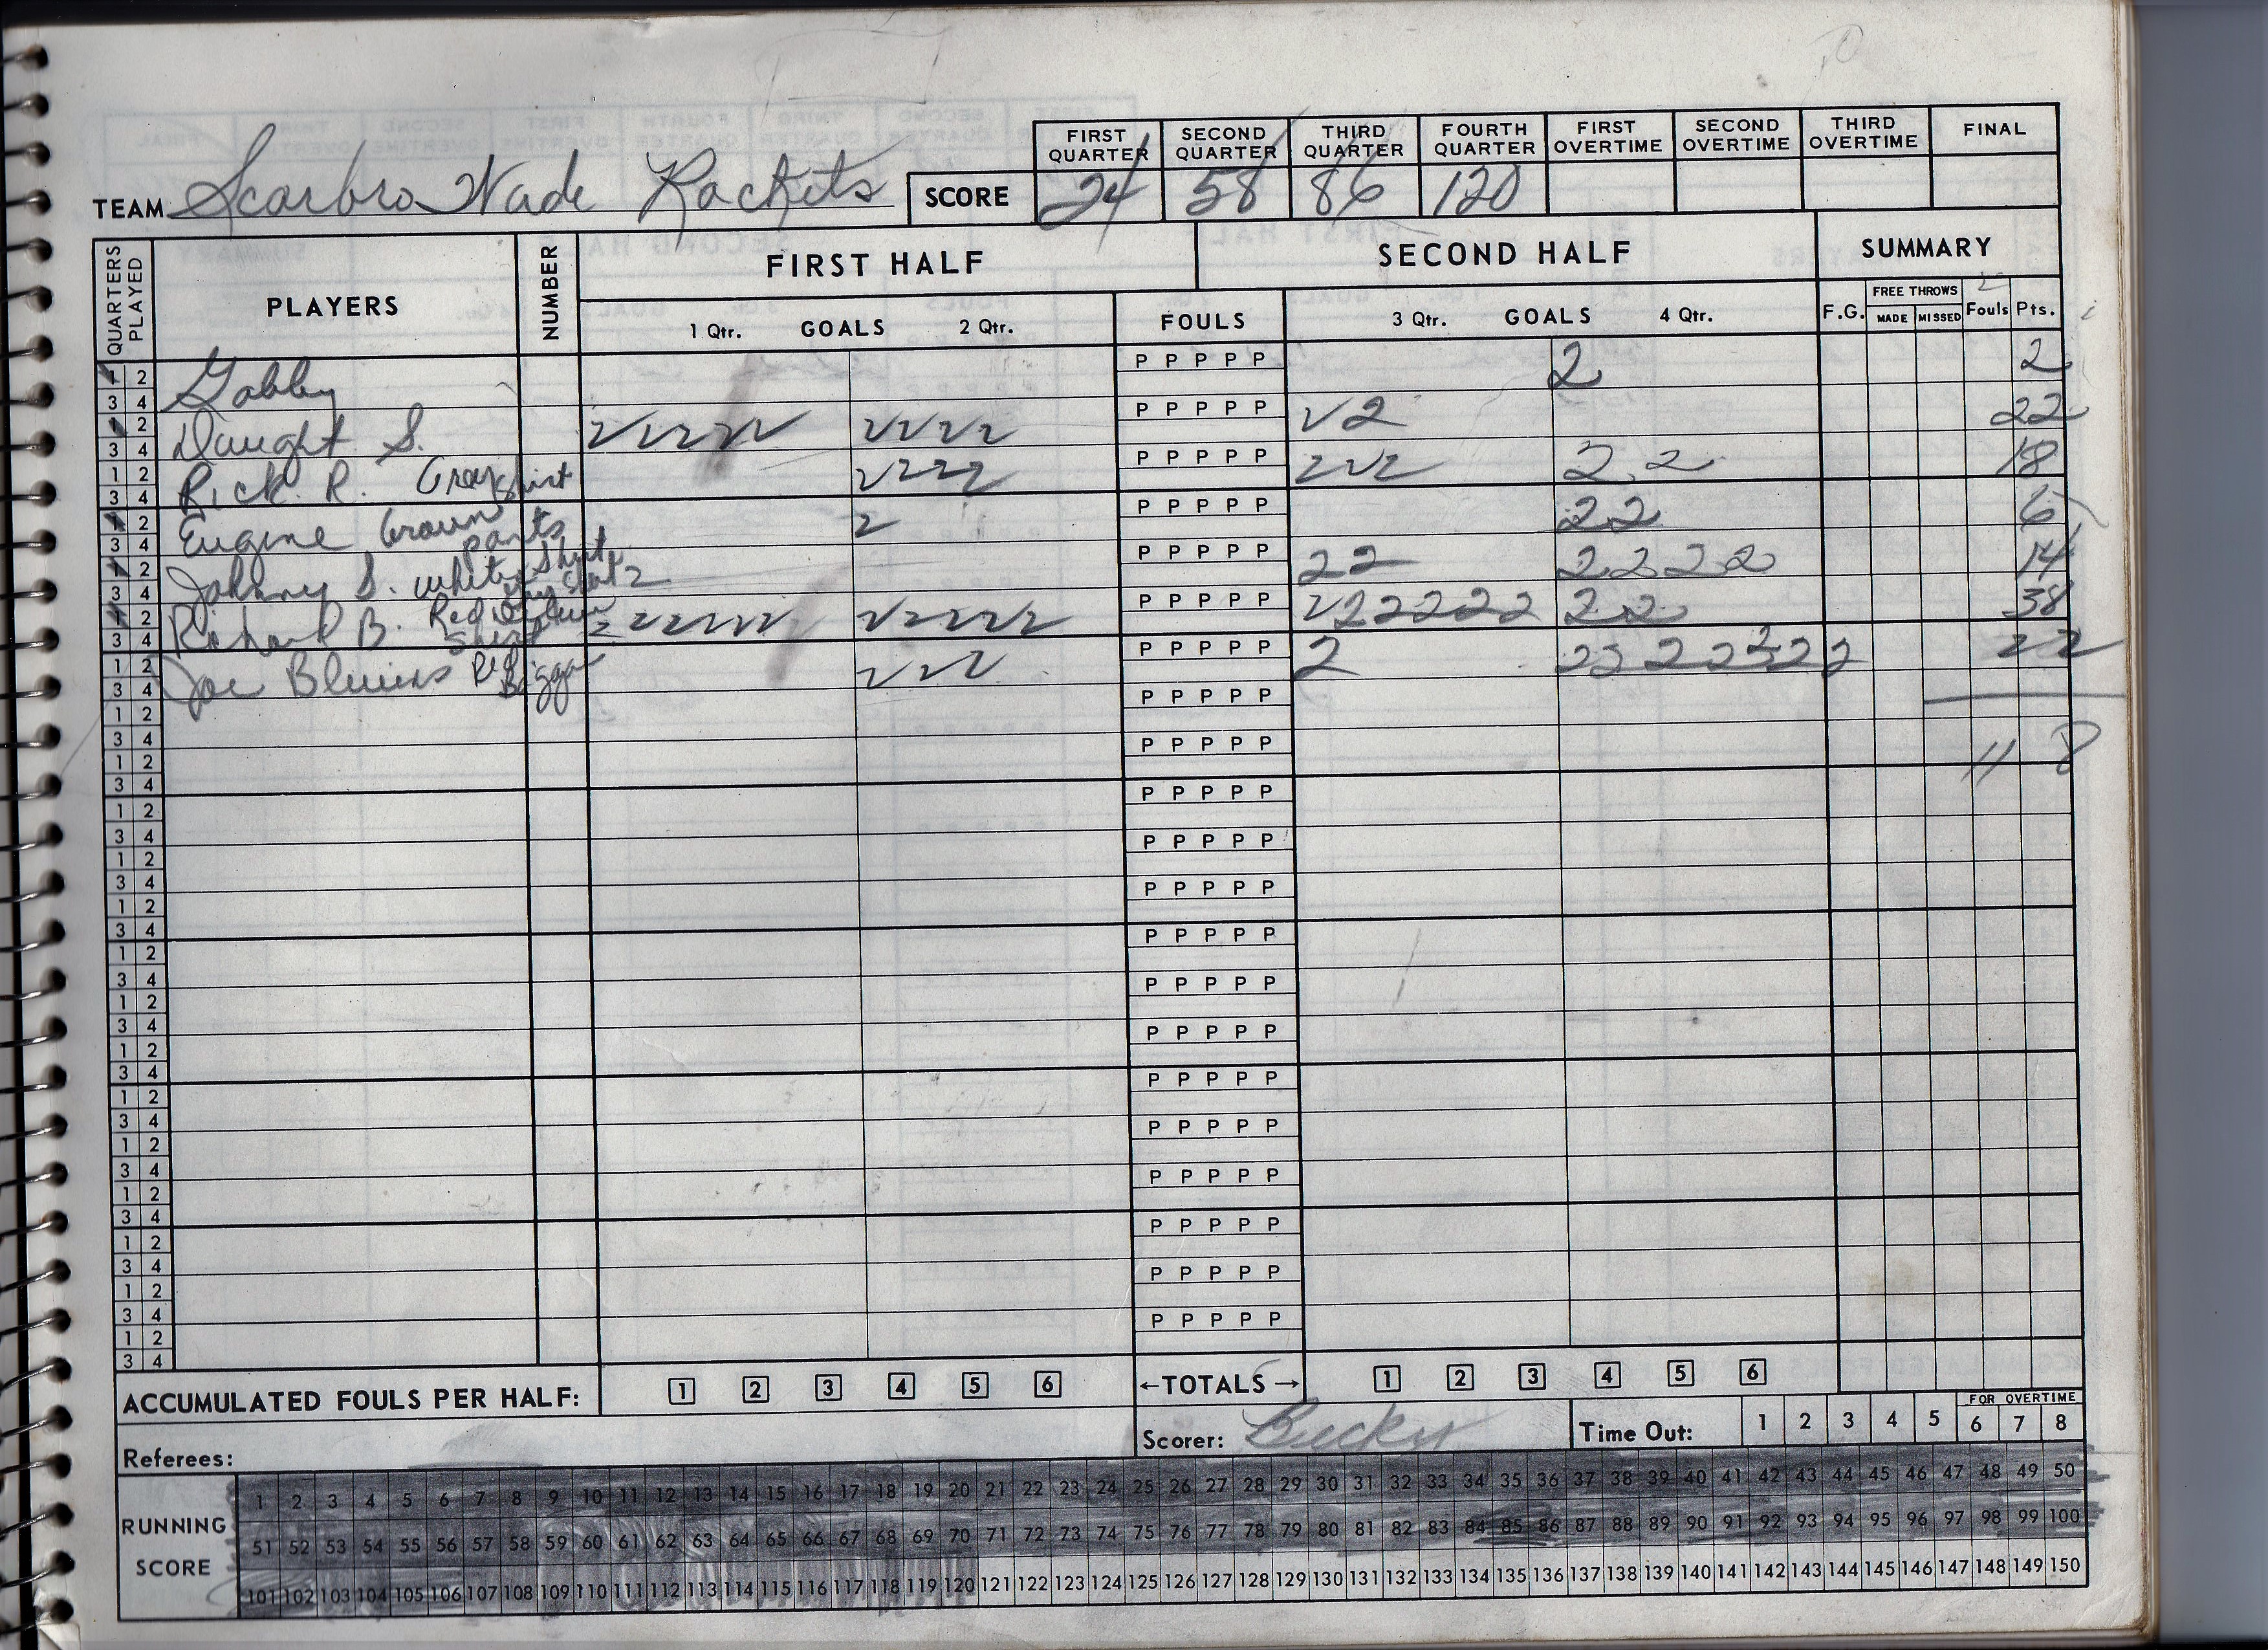 FIRST QUARTER SECOND QUARTER THIRD QUARTER FOURTH QUARTER FIRST OVERTIME SECOND OVERTIME THIRD OVERTIME FINAL
TEAM Scarbro Wade Rockets SCORE 24 58 86 120
QUARTERS PLAYED PLAYERS NUMBER FIRST HALF SECOND HALF SUMMARY
1 Qtr. GOALS 2 Qtr. FOULS 3 Qtr. GOALS 4 Qtr. F.G. FREE THROWS MADE MISSED Fouls Pts.
1 2 3 4 Gabby P P P P P 2 2
1 2 3 4 Dwight S. P P P P P 22
1 2 3 4 Rick R. Gray shirt P P P P P 2 2 18
1 2 3 4 Eugene Brown pants 2 P P P P P 2 2 6
1 2 3 4 Johnny S. white shirt P P P P P 2 2 2 2 2 2 14
1 2 3 4 Richard B. Red shirt P P P P P 2 2 38
1 2 3 4 Joe Blevins P P P P P 2 22
1 2 3 4 P P P P P
1 2 3 4 P P P P P 11 8
1 2 3 4 P P P P P
1 2 3 4 P P P P P
1 2 3 4 P P P P P
1 2 3 4 P P P P P
1 2 3 4 P P P P P
1 2 3 4 P P P P P
1 2 3 4 P P P P P
1 2 3 4 P P P P P
1 2 3 4 P P P P P
1 2 3 4 P P P P P
1 2 3 4 P P P P P
1 2 3 4 P P P P P
ACCUMULATED FOULS PER HALF: 1 2 3 4 5 6 ←TOTALS→ 1 2 3 4 5 6
Referees: Scorer: Becky Time Out: 1 2 3 4 5 FOR OVERTIME 6 7 8
RUNNING SCORE
1 2 3 4 5 6 7 8 9 10 11 12 13 14 15 16 17 18 19 20 21 22 23 24 25 26 27 28 29 30 31 32 33 34 35 36 37 38 39 40 41 42 43 44 45 46 47 48 49 50
51 52 53 54 55 56 57 58 59 60 61 62 63 64 65 66 67 68 69 70 71 72 73 74 75 76 77 78 79 80 81 82 83 84 85 86 87 88 89 90 91 92 93 94 95 96 97 98 99 100
101 102 103 104 105 106 107 108 109 110 111 112 113 114 115 116 117 118 119 120 121 122 123 124 125 126 127 128 129 130 131 132 133 134 135 136 137 138 139 140 141 142 143 144 145 146 147 148 149 150